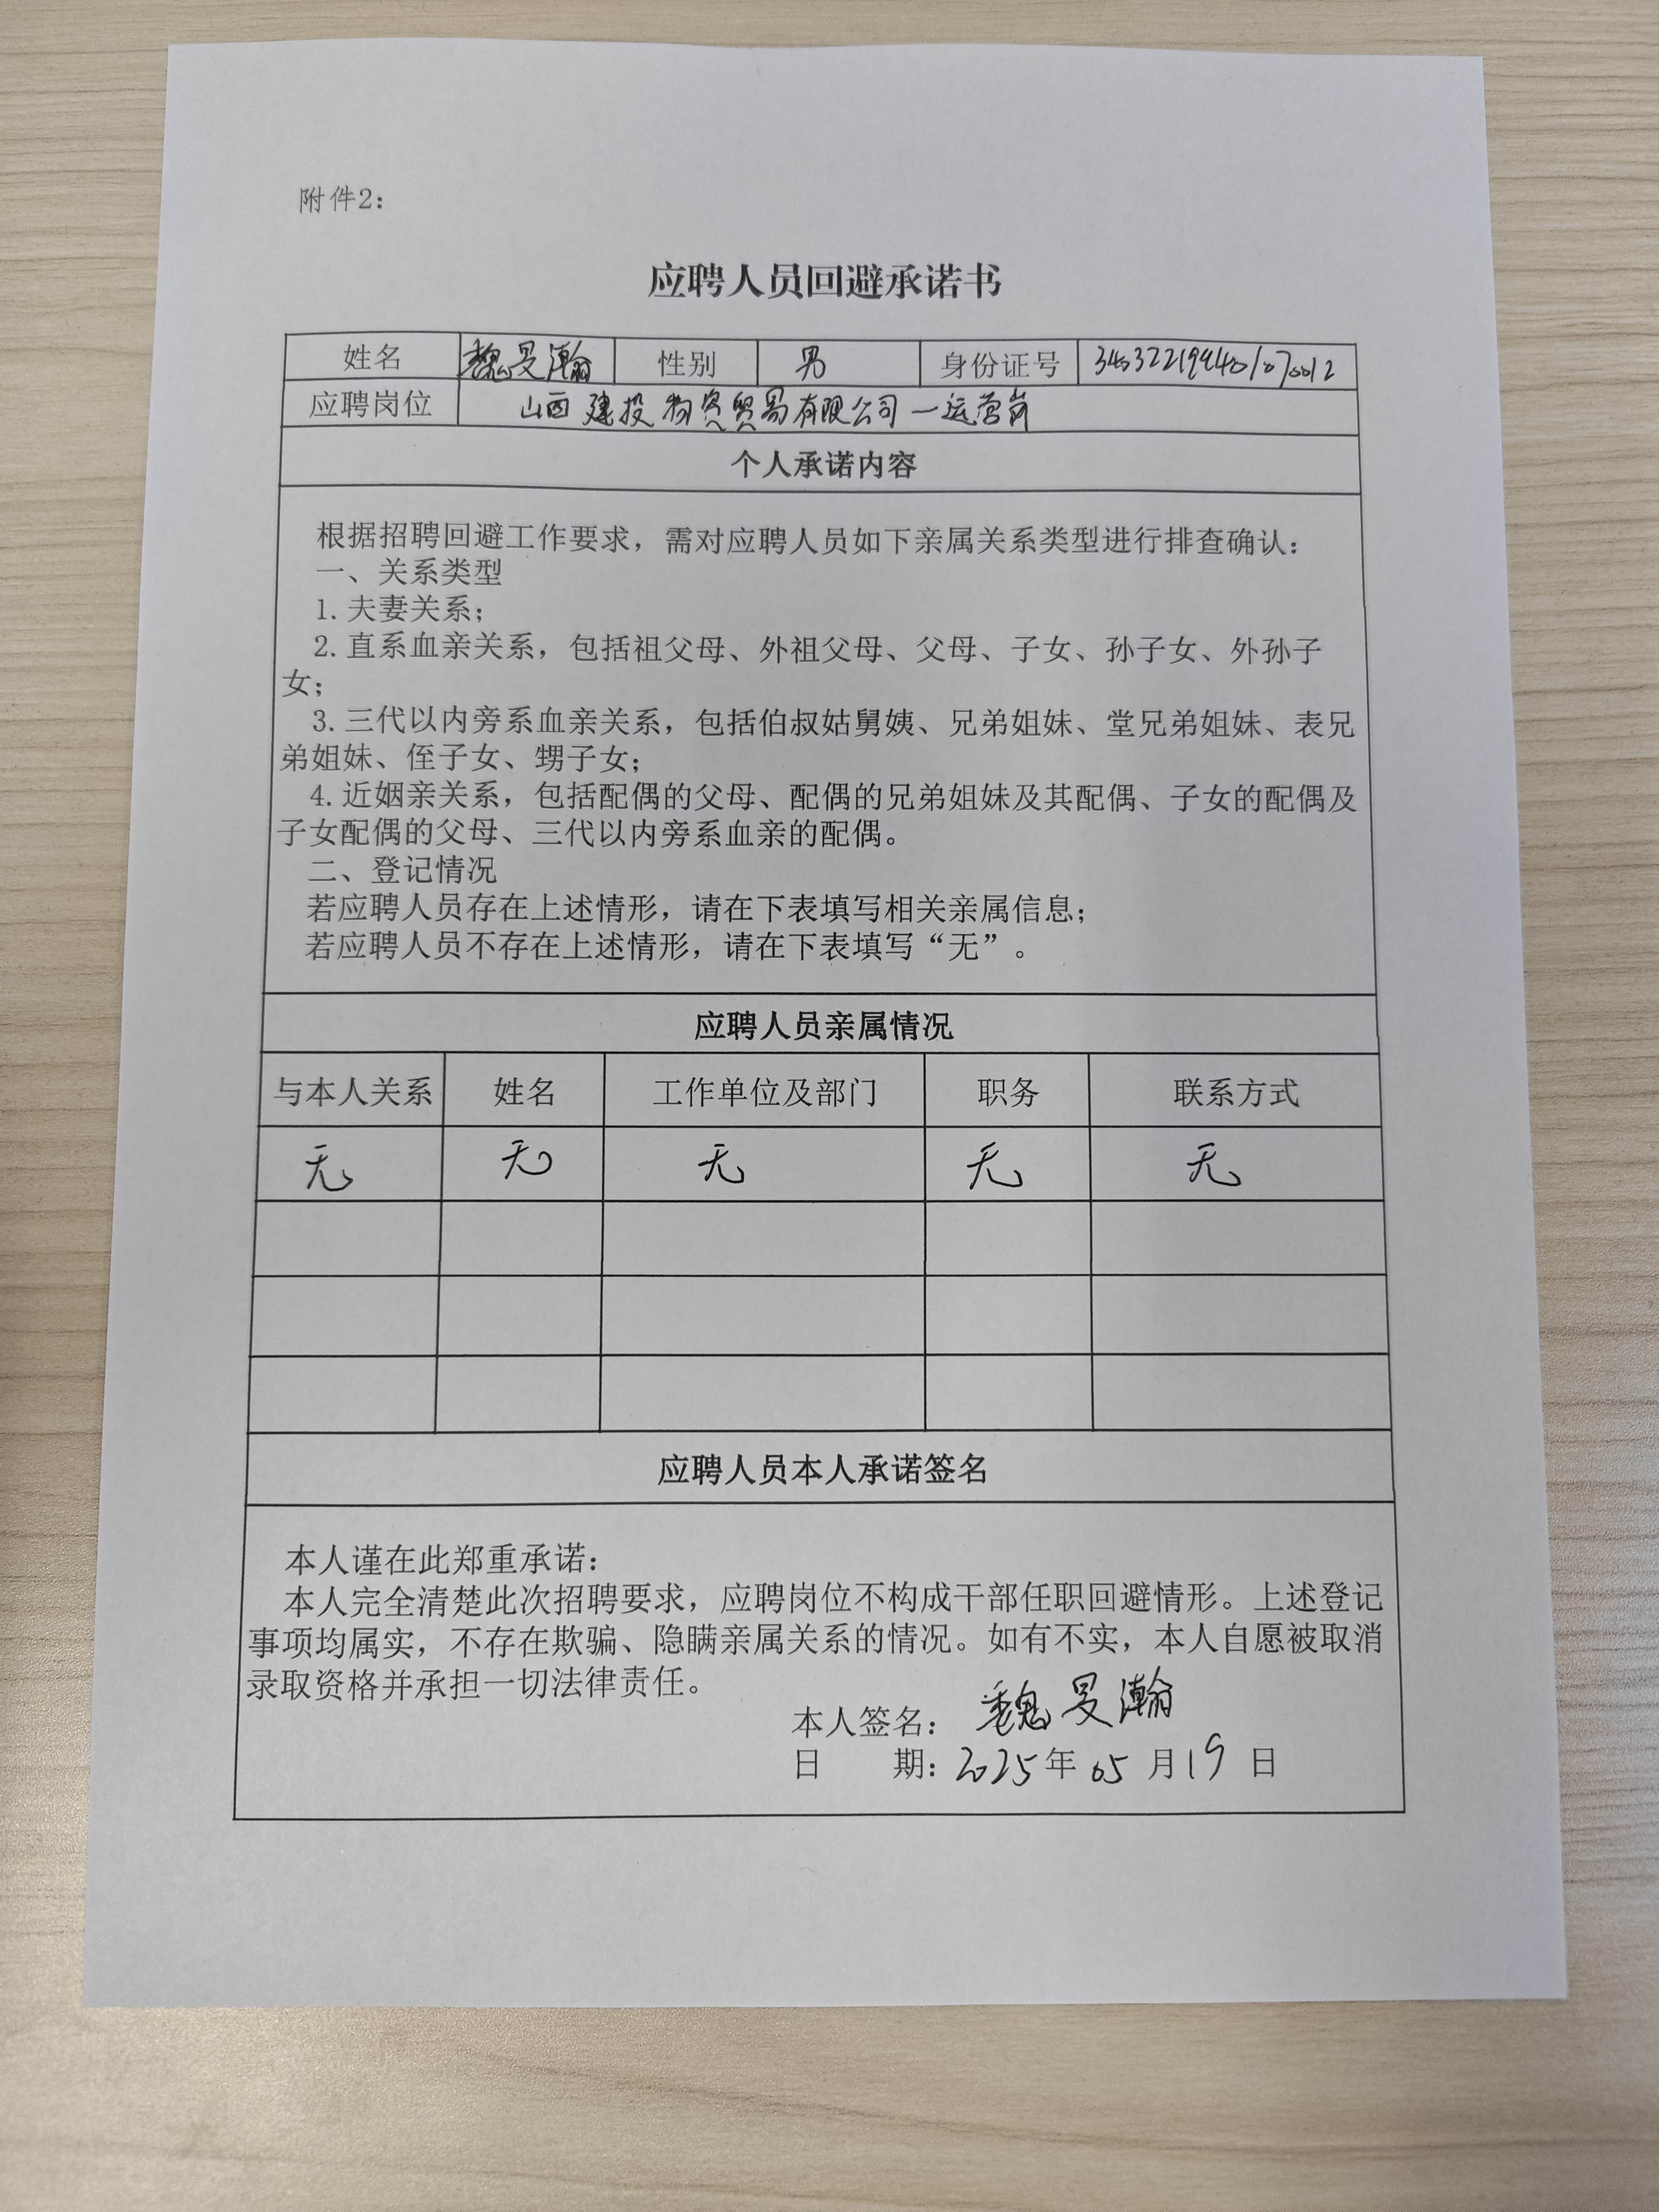 附件2：
应聘人员回避承诺书
姓名 魏旻瀚 性别 男 身份证号
应聘岗位 山西建投物资贸易有限公司—运营岗
个人承诺内容
根据招聘回避工作要求，需对应聘人员如下亲属关系类型进行排查确认：
一、关系类型
1.夫妻关系；
2.直系血亲关系，包括祖父母、外祖父母、父母、子女、孙子女、外孙子
女；
3.三代以内旁系血亲关系，包括伯叔姑舅姨、兄弟姐妹、堂兄弟姐妹、表兄
弟姐妹、侄子女、甥子女；
4.近姻亲关系，包括配偶的父母、配偶的兄弟姐妹及其配偶、子女的配偶及
子女配偶的父母、三代以内旁系血亲的配偶。
二、登记情况
若应聘人员存在上述情形，请在下表填写相关亲属信息；
若应聘人员不存在上述情形，请在下表填写“无”。
应聘人员亲属情况
与本人关系 姓名 工作单位及部门 职务 联系方式
无 无 无 无 无
应聘人员本人承诺签名
本人谨在此郑重承诺：
本人完全清楚此次招聘要求，应聘岗位不构成干部任职回避情形。上述登记
事项均属实，不存在欺骗、隐瞒亲属关系的情况。如有不实，本人自愿被取消
录取资格并承担一切法律责任。
本人签名：魏旻瀚
日 期：2025年05月19日